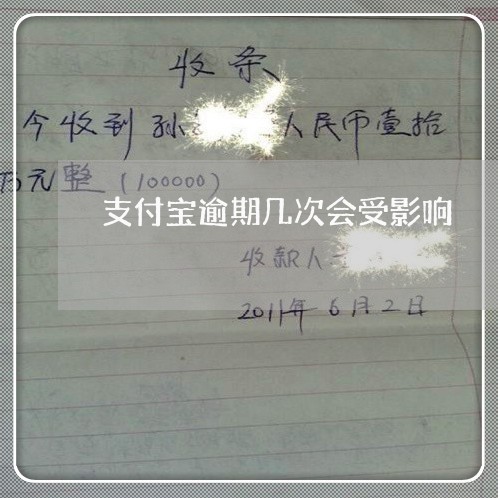 收条
今收到孙 人民币壹拾
万元整(100000)
支付宝逾期几次会受影响
收款人
2011年6月2日